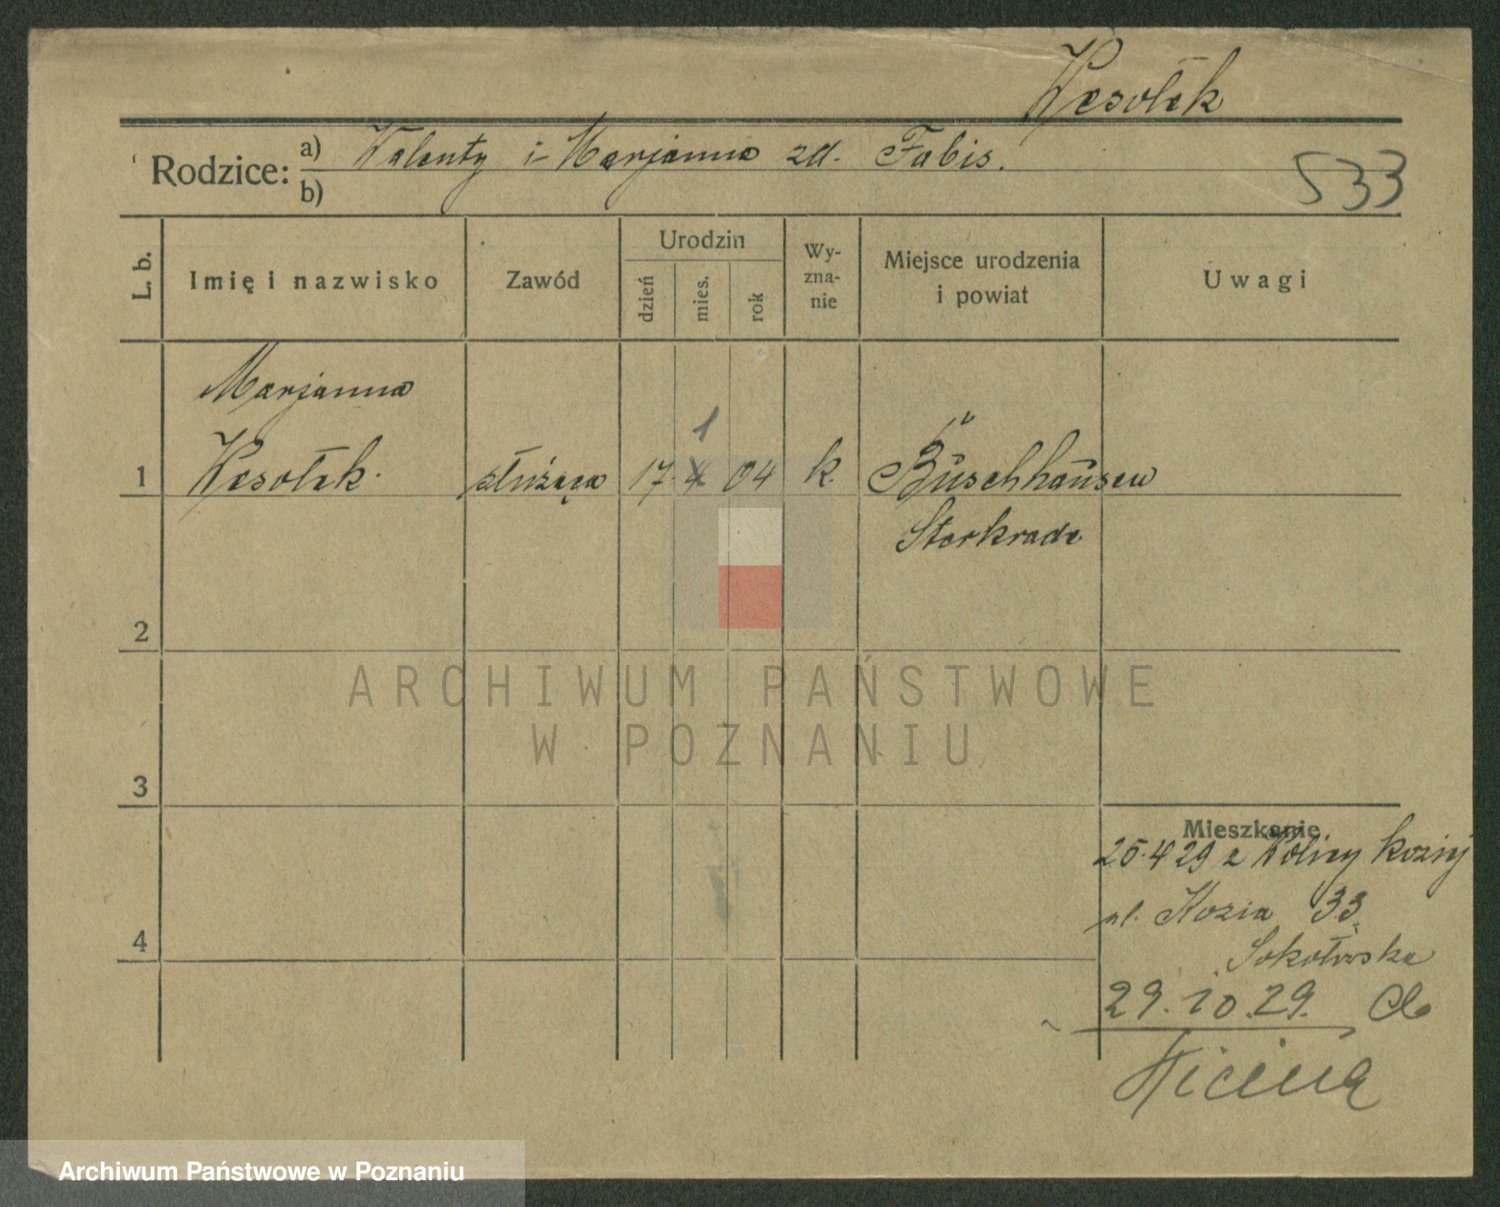 Wesołek
Rodzice: a) Walenty i Marjanna zd. Fabis.
b)
533
L. b.
Imię i nazwisko
Zawód
Urodzin
dzień
mies.
rok
Wy-
zna-
nie
Miejsce urodzenia
i powiat
Uwagi
Marjanna
1
1 Wesołek. służąca 17. 4 04 k. Büschhausen
Sterkrade
2
ARCHIWUM PAŃSTWOWE
W POZNANIU
3
Mieszkanie
25.4 29 z Wólicy koziej
ul. Kozia 33
Sokołowska
4
29.10.29. do
Archiwum Państwowe w Poznaniu